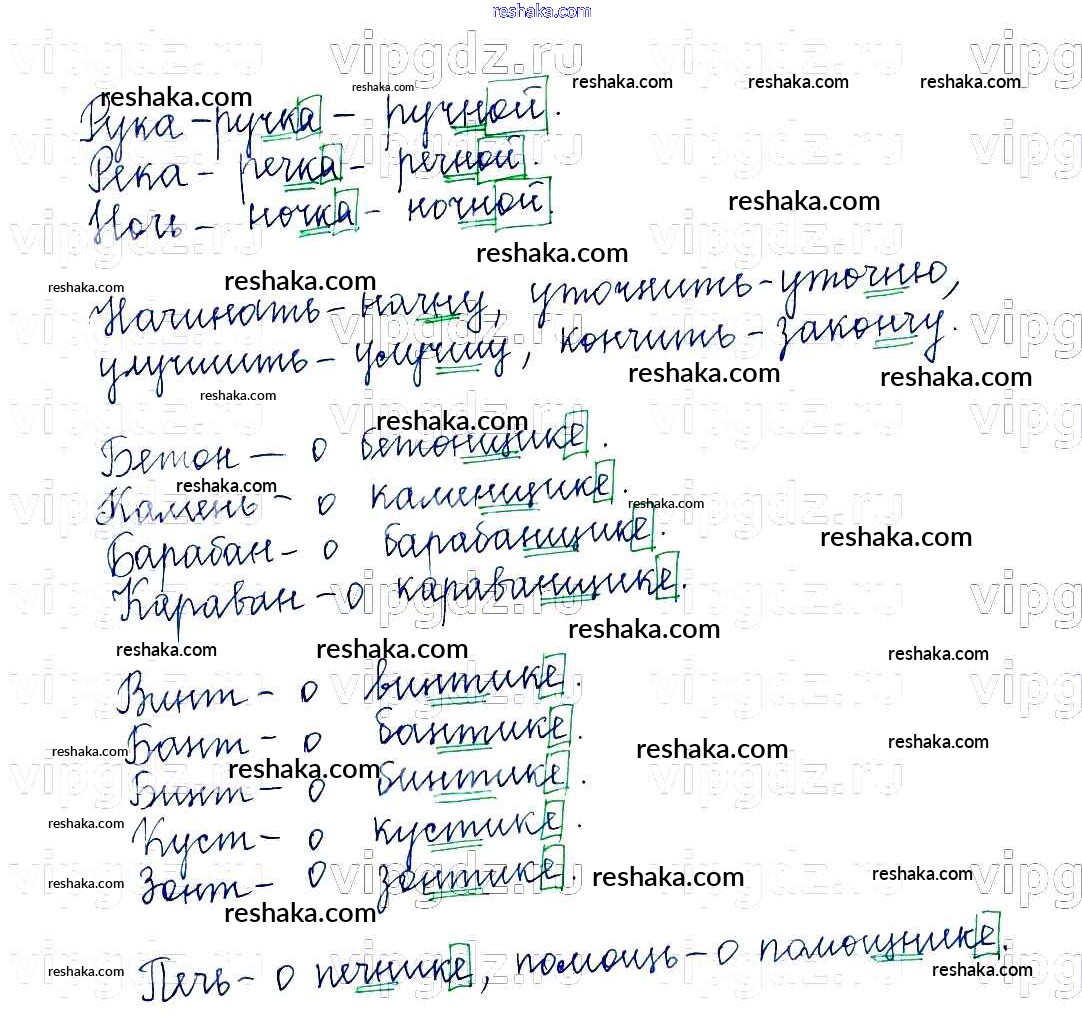 reshaka.com
Рука – ручка – ручной.
Река – речка – речной.
Ночь – ночка – ночной.
Начинать – начну, уточнить – уточню,
улучшить – улучшу, кончить – закончу.
Бетон – о бетонщике.
Камень – о каменщике.
Барабан – о барабанщике.
Караван – о караванщике.
Винт – о винтике.
Бант – о бантике.
Бинт – о бинтике.
Куст – о кустике.
Зонт – о зонтике.
Печь – о печнике, помощь – о помощнике.